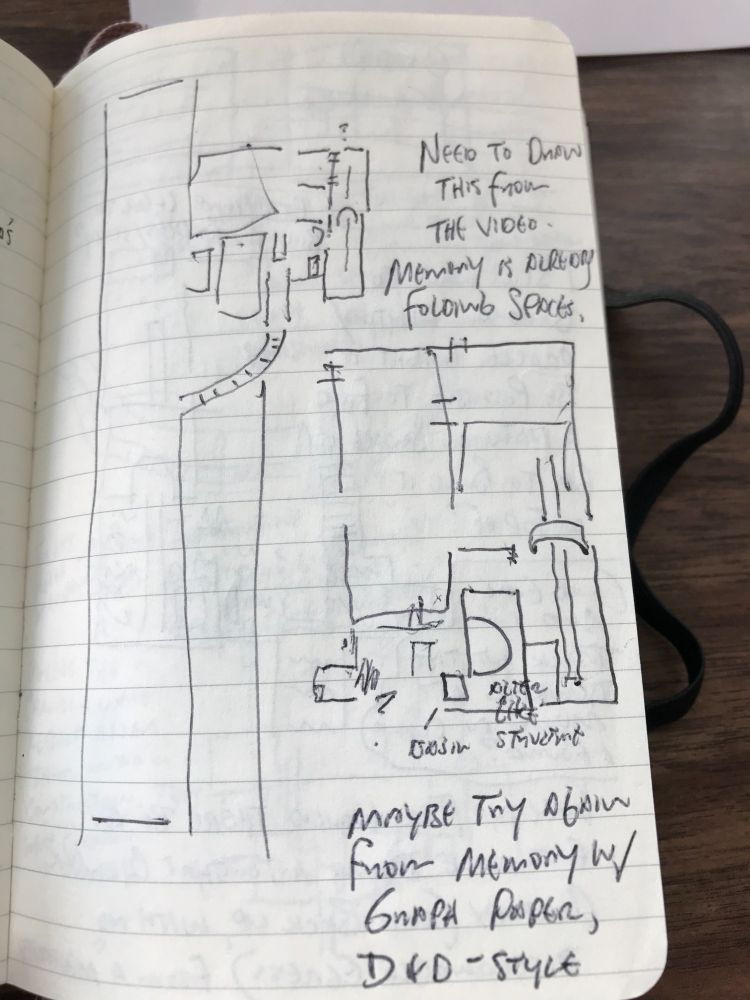 NEED TO DRAW
THIS FROM
THE VIDEO.
MEMORY IS ALREADY
FOLDING SPACES.
?
?
BASIN
ALTER
LIKE
STRUCTURE
MAYBE TRY AGAIN
FROM MEMORY W/
GRAPH PAPER,
D&D-STYLE